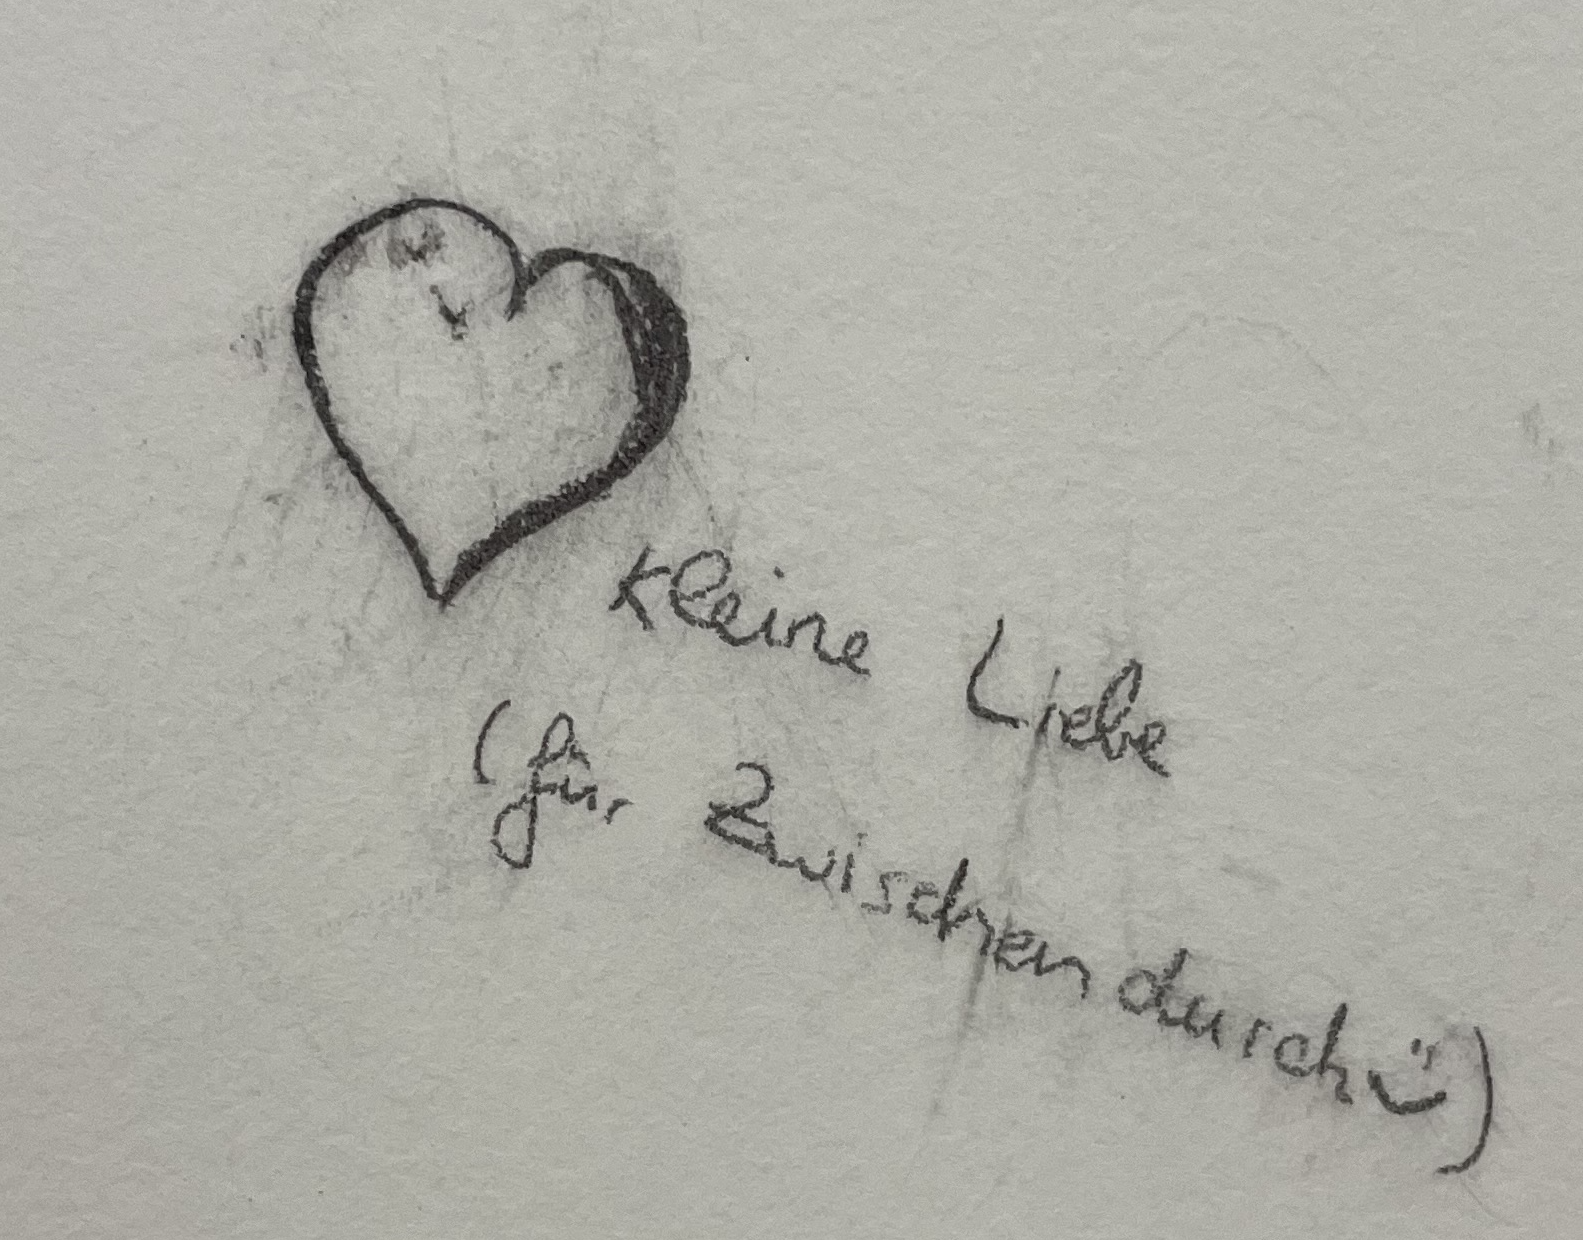 kleine Liebe
(für Zwischendurch ü)